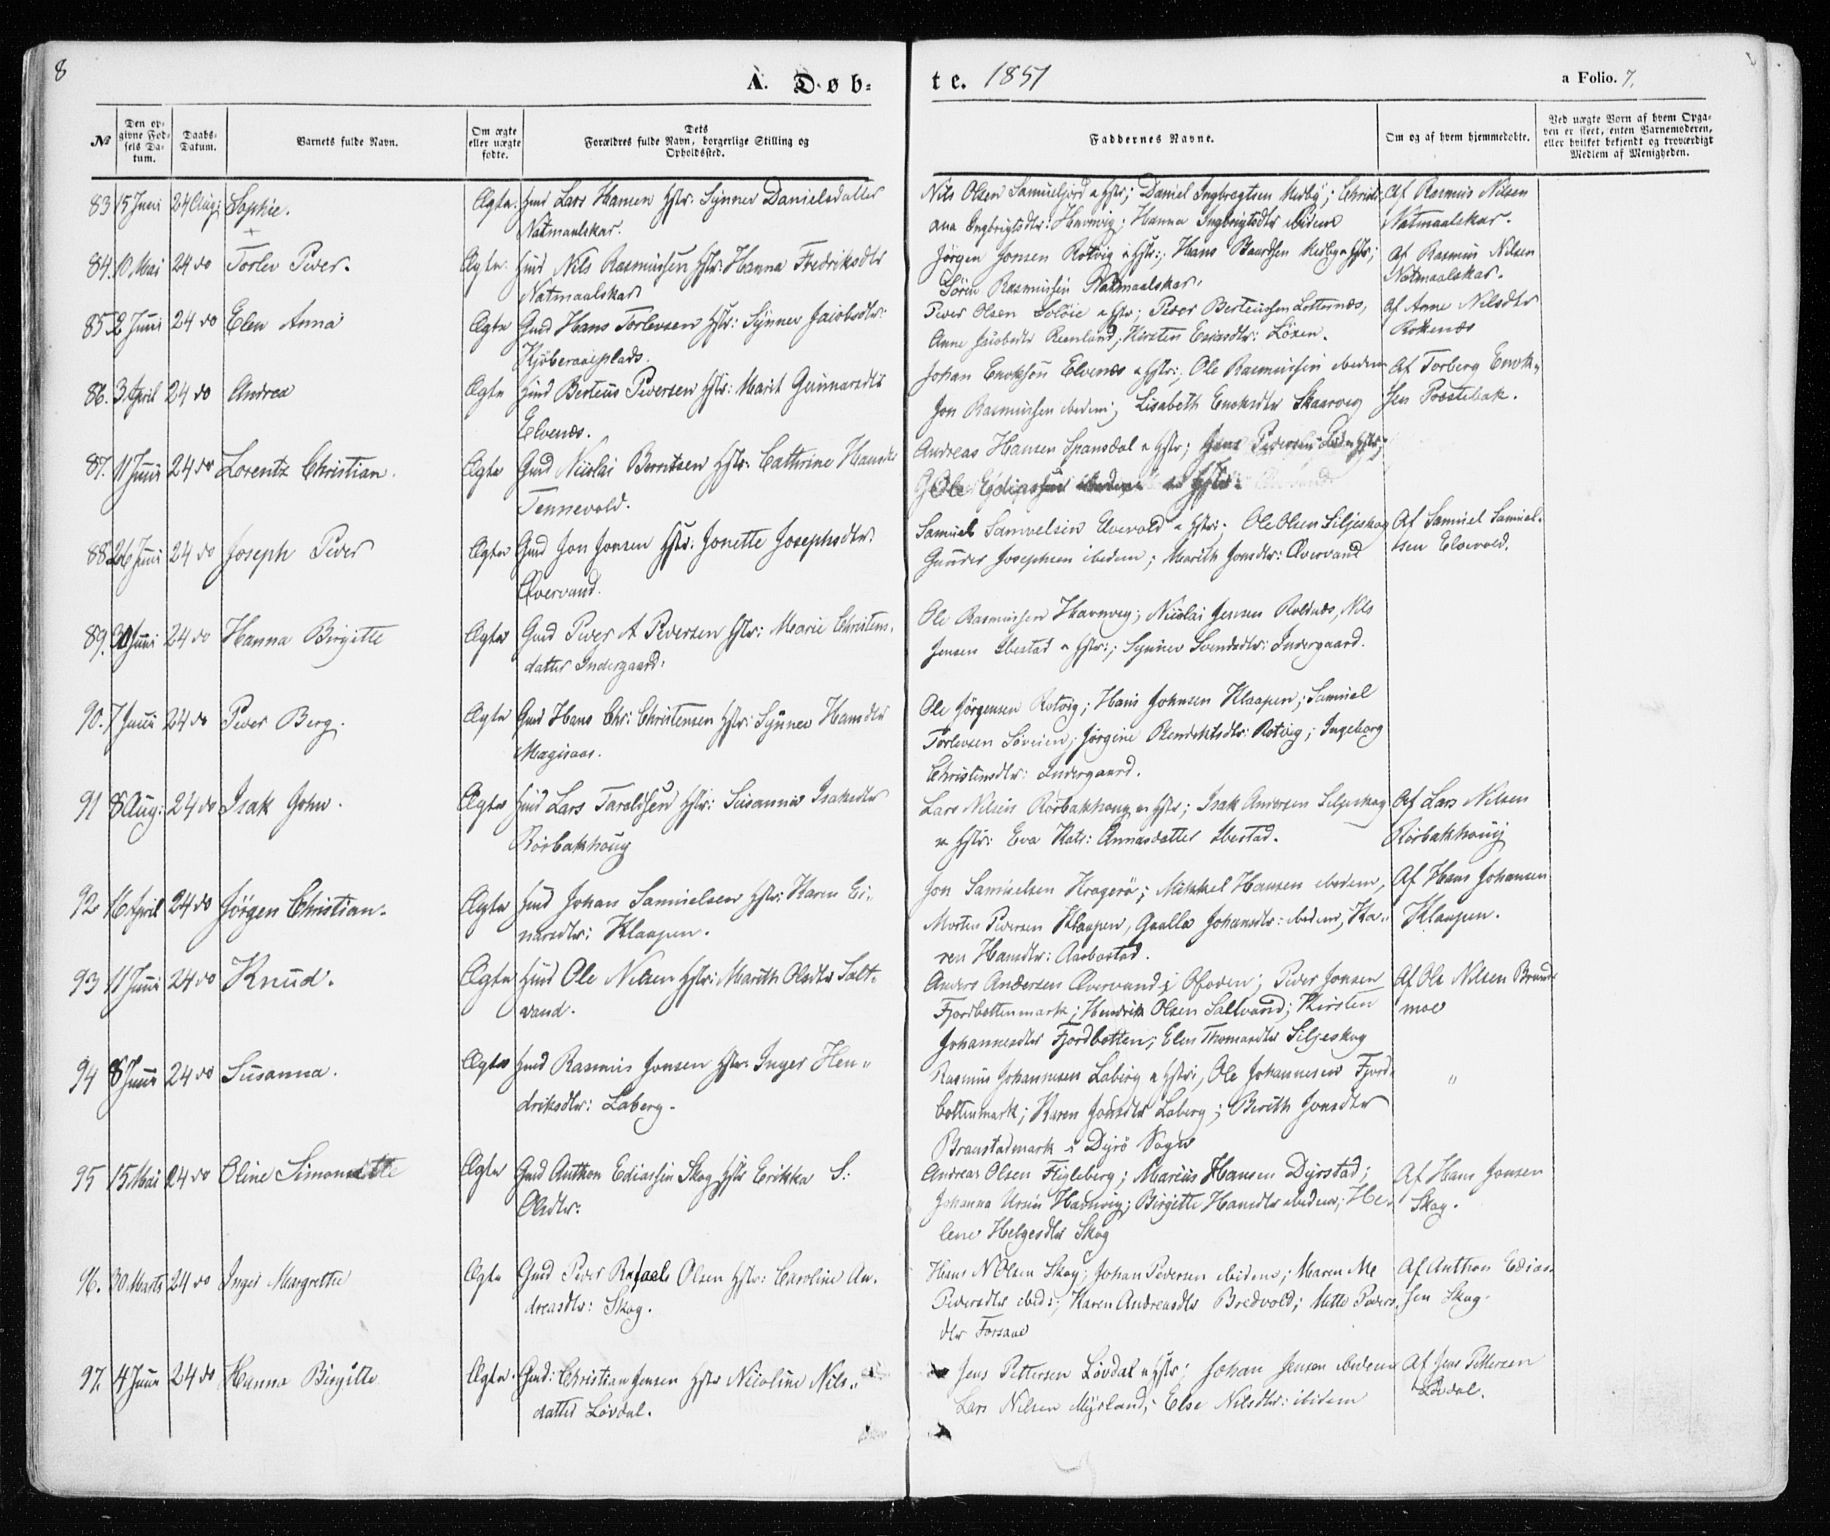 8
A. Døb-
te. 1851
a Folio. 7.
No
Den opgivne Fødsels Datum.
Daabs-Datum.
Barnets fulde Navn.
Om ægte eller uægte fødte.
Dets Forældres fulde Navn, borgerlige Stilling og Opholdssted.
Faddernes Navne.
Om og af hvem hjemmedøbte.
Ved uægte Børn af hvem Opgaven er skeet, enten Barnemoderen, eller hvilket bekjendt og troværdigt Medlem af Menigheden.
83 15 Juni 24 Aug: Sophie. Ægte. Huusd Lars Hansen Hstr: Synnev Danielsdatter
Natmaalskar.
Nils Olsen Samueljord & Hstr; Daniel Ingbregtsen Medby; Christi-
ana Ingbrigtsdtr: Havnvig; Hanna Ingbrigtsdtr ibidem
Af Rasmus Nilsen
Natmaalskar.
84. 10 Mai 24 do Torlev Peder. Ægte. Huusd Nils Rasmussen Hstr: Hanna Fredriksdtr
Natmaalskar
Jørgen Jonsen Rotvig & Hstr:, Hans Baardsen Medby & Hstr;
Sören Rasmussen Natmaalskar.
Af Rasmus Nilsen
Natmaalskar.
85. 2 Juni 24 do Elen Anna Ægte Gmd Hans Torlevsen Hstr: Synnev Jacobsdtr:
Kjöberaaeplads.
Peder Olsen Soløie & Hstr; Peder Berteussen Lotternæs,
Anne Jacobsdtr Reenland; Kirsten Ericsdtr: Løxen.
af Anne Nilsdtr
Rökenæs
86. 3 April 24 do Andrea Ægte Huusd Berteus Pedersen Hstr: Marit Gunnarsdtr
Elvenæs.
Johan Enoksen Elvenæs & Hstr:, Ole Rasmussen ibidem
Jon Rasmussen ibidem; Lisabeth Enoksdtr Skaarvig
Af Torberg Enok-
sen Postebak.
87. 11 Juni 24 do Lorentz Christian. Ægte Gmd Nicolai Berntsen Hstr: Cathrine Hansdtr
Tennevold.
Andreas Hansen Spansdal & Hstr; Jens Pedersen & Hstr;
Ole Ediassen ibidem & Hstr:
88. 26 Juni 24 do Joseph Peder Ægte Gmd Jon Jonsen Hstr: Jonette Josephsdtr:
Øvervand.
Samuel Samuelsen Elvevold & Hstr; Ole Olsen Siljeskog
Gunder Josephsen ibidem; Marith Jonsdtr: Øvervand
Af Samuel Samuel-
sen Elvevold.
89. 30 Juni 24 do Hanna Birgitte Ægte Gmd Peder A Pedersen Hstr: Marie Christens-
datter Indergaard.
Ole Rasmussen Havnvig; Nicolai Jensen Roldnæs, Nils
Jensen Ibestad & Hstr:; Synnev Svendsdtr: Indergaard.
90. 7 Juni 24 do Peder Berg. Ægte Gmd Hans Chr: Christensen Hstr: Synnev Hansdtr
Magisaas.
Ole Jørgensen Rotvig; Hans Johnsen Klaapen; Samuel
Torlevsen Søveien; Jørgine Bendiktsdtr: Rotvig; Ingeborg
Christensdtr: Indergaard.
91 8 Aug: 24 do Isak John. Ægte Huusd Lars Taroldsen Hstr: Susanna Isaksdtr
Rörbakhoug
Lars Nilsen Rörbakhoug & Hstr; Isak Andersen Siljeskog
& Hstr: Eva Kat: Annasdatter Ibestad.
Af Lars Nilsen
Rörbakhoug
92 16 April 24 do Jørgen Christian. Ægte Huusd Johan Samuelsen Hstr: Karen Ei-
narsdtr: Klaapen.
Jon Samuelsen Kragerö; Mikkel Hansen ibidem,
Morten Pedersen Klaapen, Gualla Johansdtr: ibidem; Ka-
ren Hansdtr: Aarbostad.
Af Hans Johansen
Klaapen.
93 11 Juni 24 do Knud. Ægte Huusd Ole Nilsen Hstr: Marith Olsdtr Salt-
vand.
Anders Andersen Øvervand i Ofoden; Peder Jonsen
Fjordbottenmark; Hendrik Olsen Saltvand; Kirsten
Johannesdtr Fjordbotten; Elen Thomasdtr Siljeskog
Af Ole Nilsen Brand-
moe
94 8 Juni 24 do Susanna. Ægte Huusd Rasmus Jonsen Hstr: Inger Hen-
driksdtr: Laberg.
Rasmus Johannesen Laberg & Hstr:, Ole Johannesen Fjord-
bottenmark; Karen Jonsdtr Laberg; Berith Jonsdtr
Branstadmark i Dyrö Sogn
"
95 15 Mai 24 do Oline Simonette Ægte Gmd Anthon Ediassen Skog Hstr Erikka S:
Olsdtr:
Andreas Olsen Flygleberg; Marius Hansen Dyrstad;
Johanna Ursin Havnvig; Birgitte Hansdtr ibidem; He-
lene Helgesdtr Skog
Af Hans Jonsen
Skog.
96. 30 Marts 24 do Inger Margrethe Ægte Gmd Peder Rafael Olsen Hstr: Caroline An-
dreasdtr: Skog.
Hans N Olsen Skog; Johan Pedersen ibidem; Maren M
Pedersdtr ibid:; Karen Andreasdtr Bredvold; Mette Peders-
dtr Forsaae
Af Anthon Edias-
sen Skog.
97. 4 Juni 24 do Hanna Birgitte Ægte. Gmd: Christian Jensen Hstr Nicoline Nils-
datter Løvdal.
Jens Pettersen Løvdal & Hstr; Johan Jensen ibidem
Lars Nilsen Myrland; Else Nilsdtr: ibidem
Af Jens Pettersen
Løvdal.